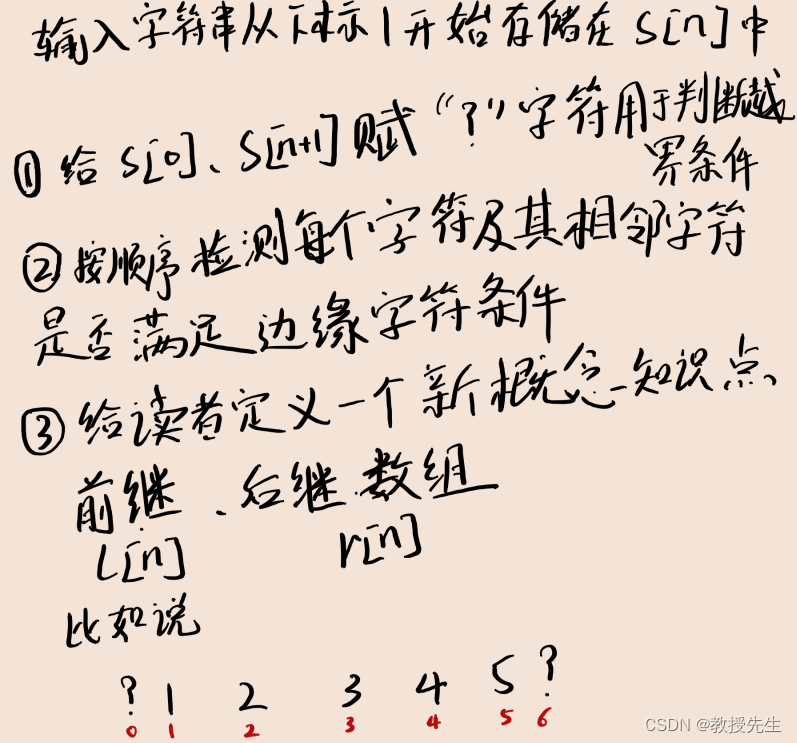 输入字符串从下标1开始存储在 S[n]中
① 给 S[0]、S[n+1]赋“?”字符用于判断越
界条件
② 按顺序检测每个字符及其相邻字符
是否满足边缘字符条件
③ 给读者定义一个新概念_知识点、
前继、后继 数组
L[n] r[n]
比如说
? 1 2 3 4 5 ?
0 1 2 3 4 5 6
CSDN @教授先生